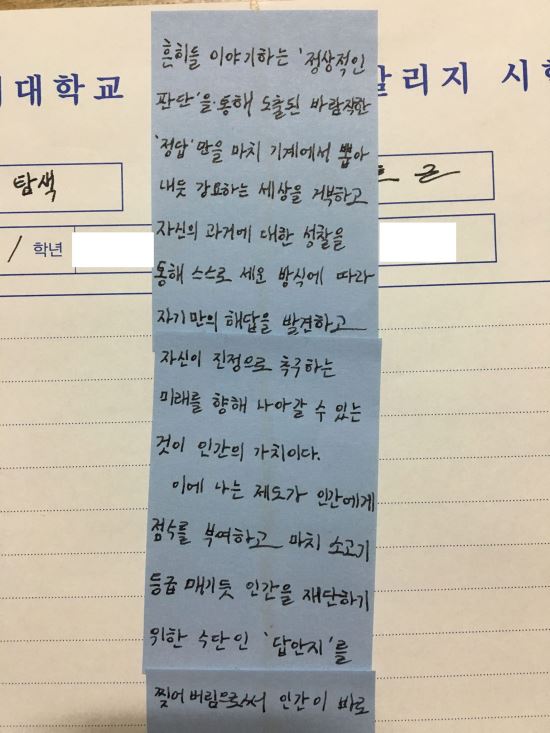 대학교
칼리지 시험
탐색
1 학년
흔히들 이야기하는 '정상적인
판단'을 통해 도출된 바람직한
'정답'만을 마치 기계에서 뽑아
내듯 강요하는 세상을 거부하고
자신의 과거에 대한 성찰을
통해 스스로 세운 방식에 따라
자기만의 해답을 발견하고
자신이 진정으로 추구하는
미래를 향해 나아갈 수 있는
것이 인간의 가치이다.
이에 나는 제도가 인간에게
점수를 부여하고 마치 소고기
등급 매기듯 인간을 재단하기
위한 수단인 '답안지'를
찢어버림으로써 인간이 바로